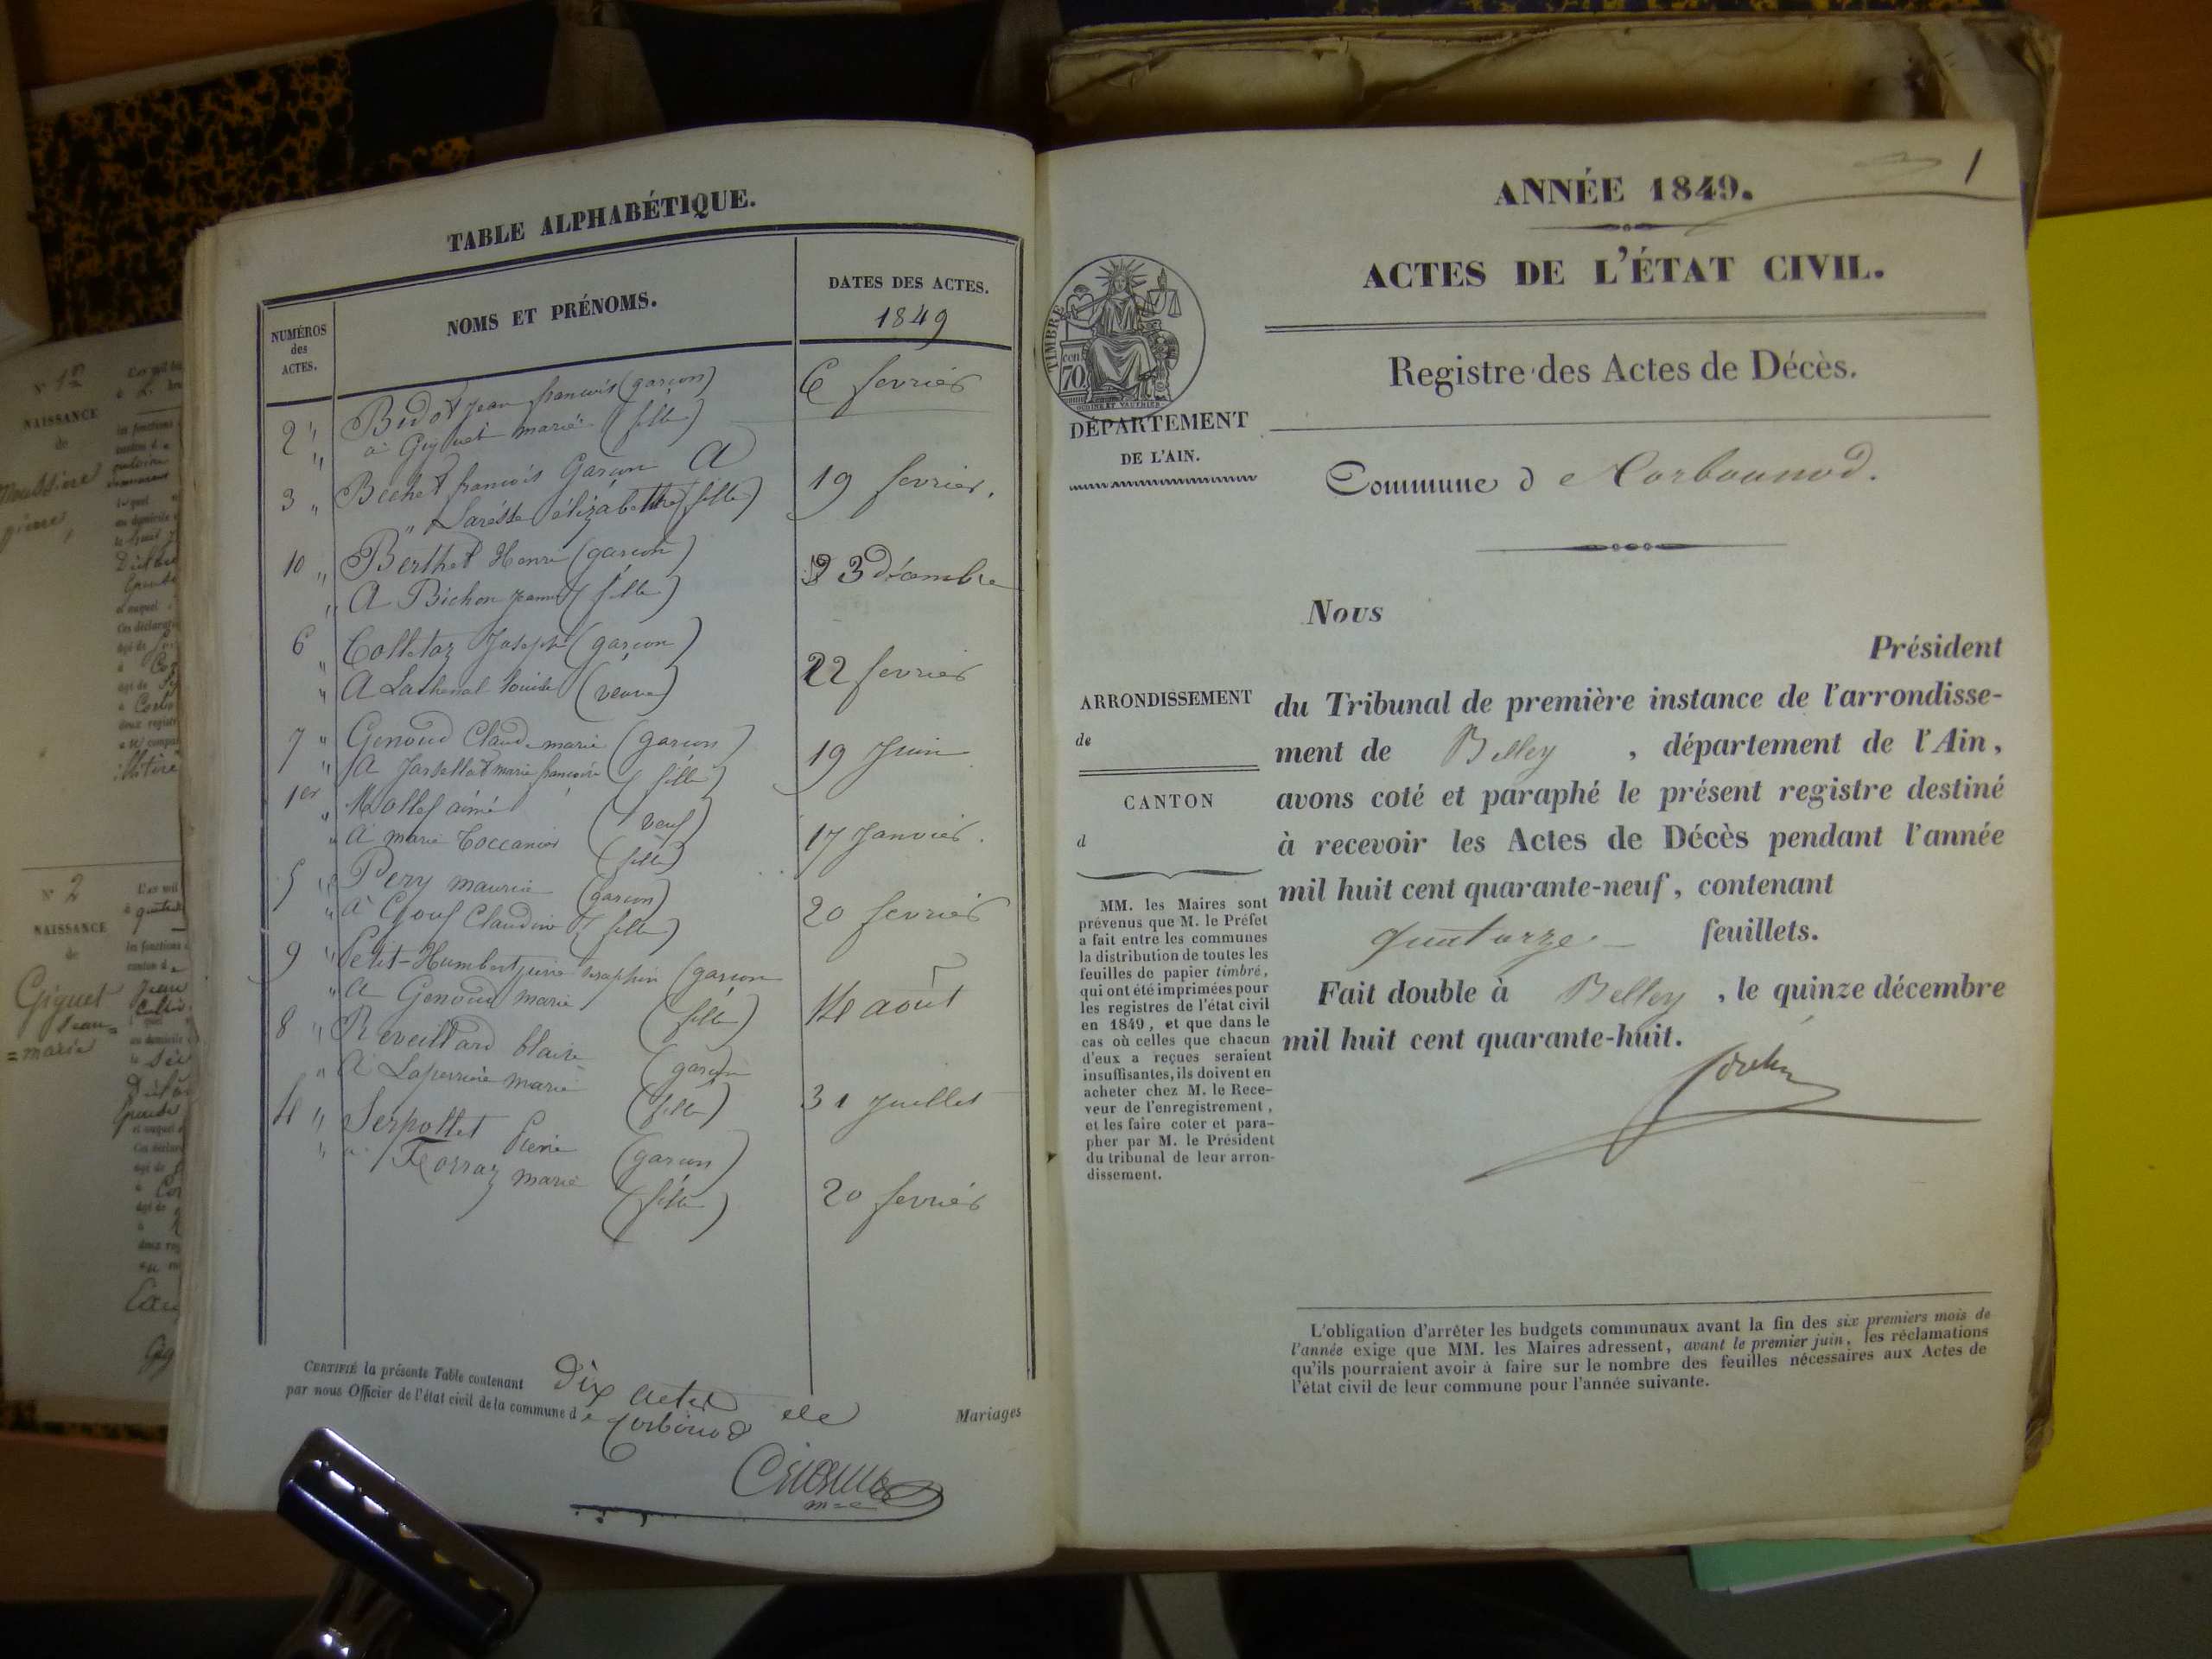 TABLE ALPHABÉTIQUE.
NUMÉROS
des
ACTES.
NOMS ET PRÉNOMS.
DATES DES ACTES.
1849
2 " Bidot jean francois (garçon) 6 fevrier
" a Giguet marie (fille)
3 " Bechet francois Garçon A 19 fevrier.
" élizabethe (fille)
10 " Berthet Henri (garçon) 23 décembre
" A Bichon jeanne (fille)
6 " Colletaz Joseph (garçon) 22 fevrier
" A Lachenal louise (veuve)
7 " Genoud Claude marie (garçon) 19 Juin
" A marie francoise (fille)
1er " aimé (veuf) 17 Janvier.
" A marie (fille)
5 " Pery maurice (garçon) 20 fevrier
" A Claudine (fille)
9 " Petit-Humbert seraphin (garçon 14 août
" A Genoud marie (fille)
8 " Reveillard blaise (garçon 31 Juillet
" A Laperrière marie (fille)
4 " Serpollet Pierre (garçon) 20 fevrier
" a Ferraz marie (fille)
CERTIFIÉ la présente Table contenant dix actes de Mariages
par nous Officier de l'état civil de la commune de Corbonod
1
ANNÉE 1849.
ACTES DE L'ÉTAT CIVIL.
Registre des Actes de Décès.
TIMBRE
70
DÉPARTEMENT
DE L'AIN.
Commune de Corbounod.
Nous
Président
ARRONDISSEMENT
de
CANTON
d
du Tribunal de première instance de l'arrondisse-
ment de Belley, département de l'Ain,
avons coté et paraphé le présent registre destiné
à recevoir les Actes de Décès pendant l'année
mil huit cent quarante-neuf, contenant
quatorze feuillets.
Fait double à Belley, le quinze décembre
mil huit cent quarante-huit.
MM. les Maires sont
prévenus que M. le Préfet
a fait entre les communes
la distribution de toutes les
feuilles de papier timbré,
qui ont été imprimées pour
les registres de l'état civil
en 1849, et que dans le
cas où celles que chacun
d'eux a reçues seraient
insuffisantes, ils doivent en
acheter chez M. le Rece-
veur de l'enregistrement,
et les faire coter et para-
pher par M. le Président
du tribunal de leur arron-
dissement.
L'obligation d'arrêter les budgets communaux avant la fin des six premiers mois de
l'année exige que MM. les Maires adressent, avant le premier juin, les réclamations
qu'ils pourraient avoir à faire sur le nombre des feuilles nécessaires aux Actes de
l'état civil de leur commune pour l'année suivante.
NAISSANCE
de
N° 2
NAISSANCE
de
Giguet
Jean=
=marie